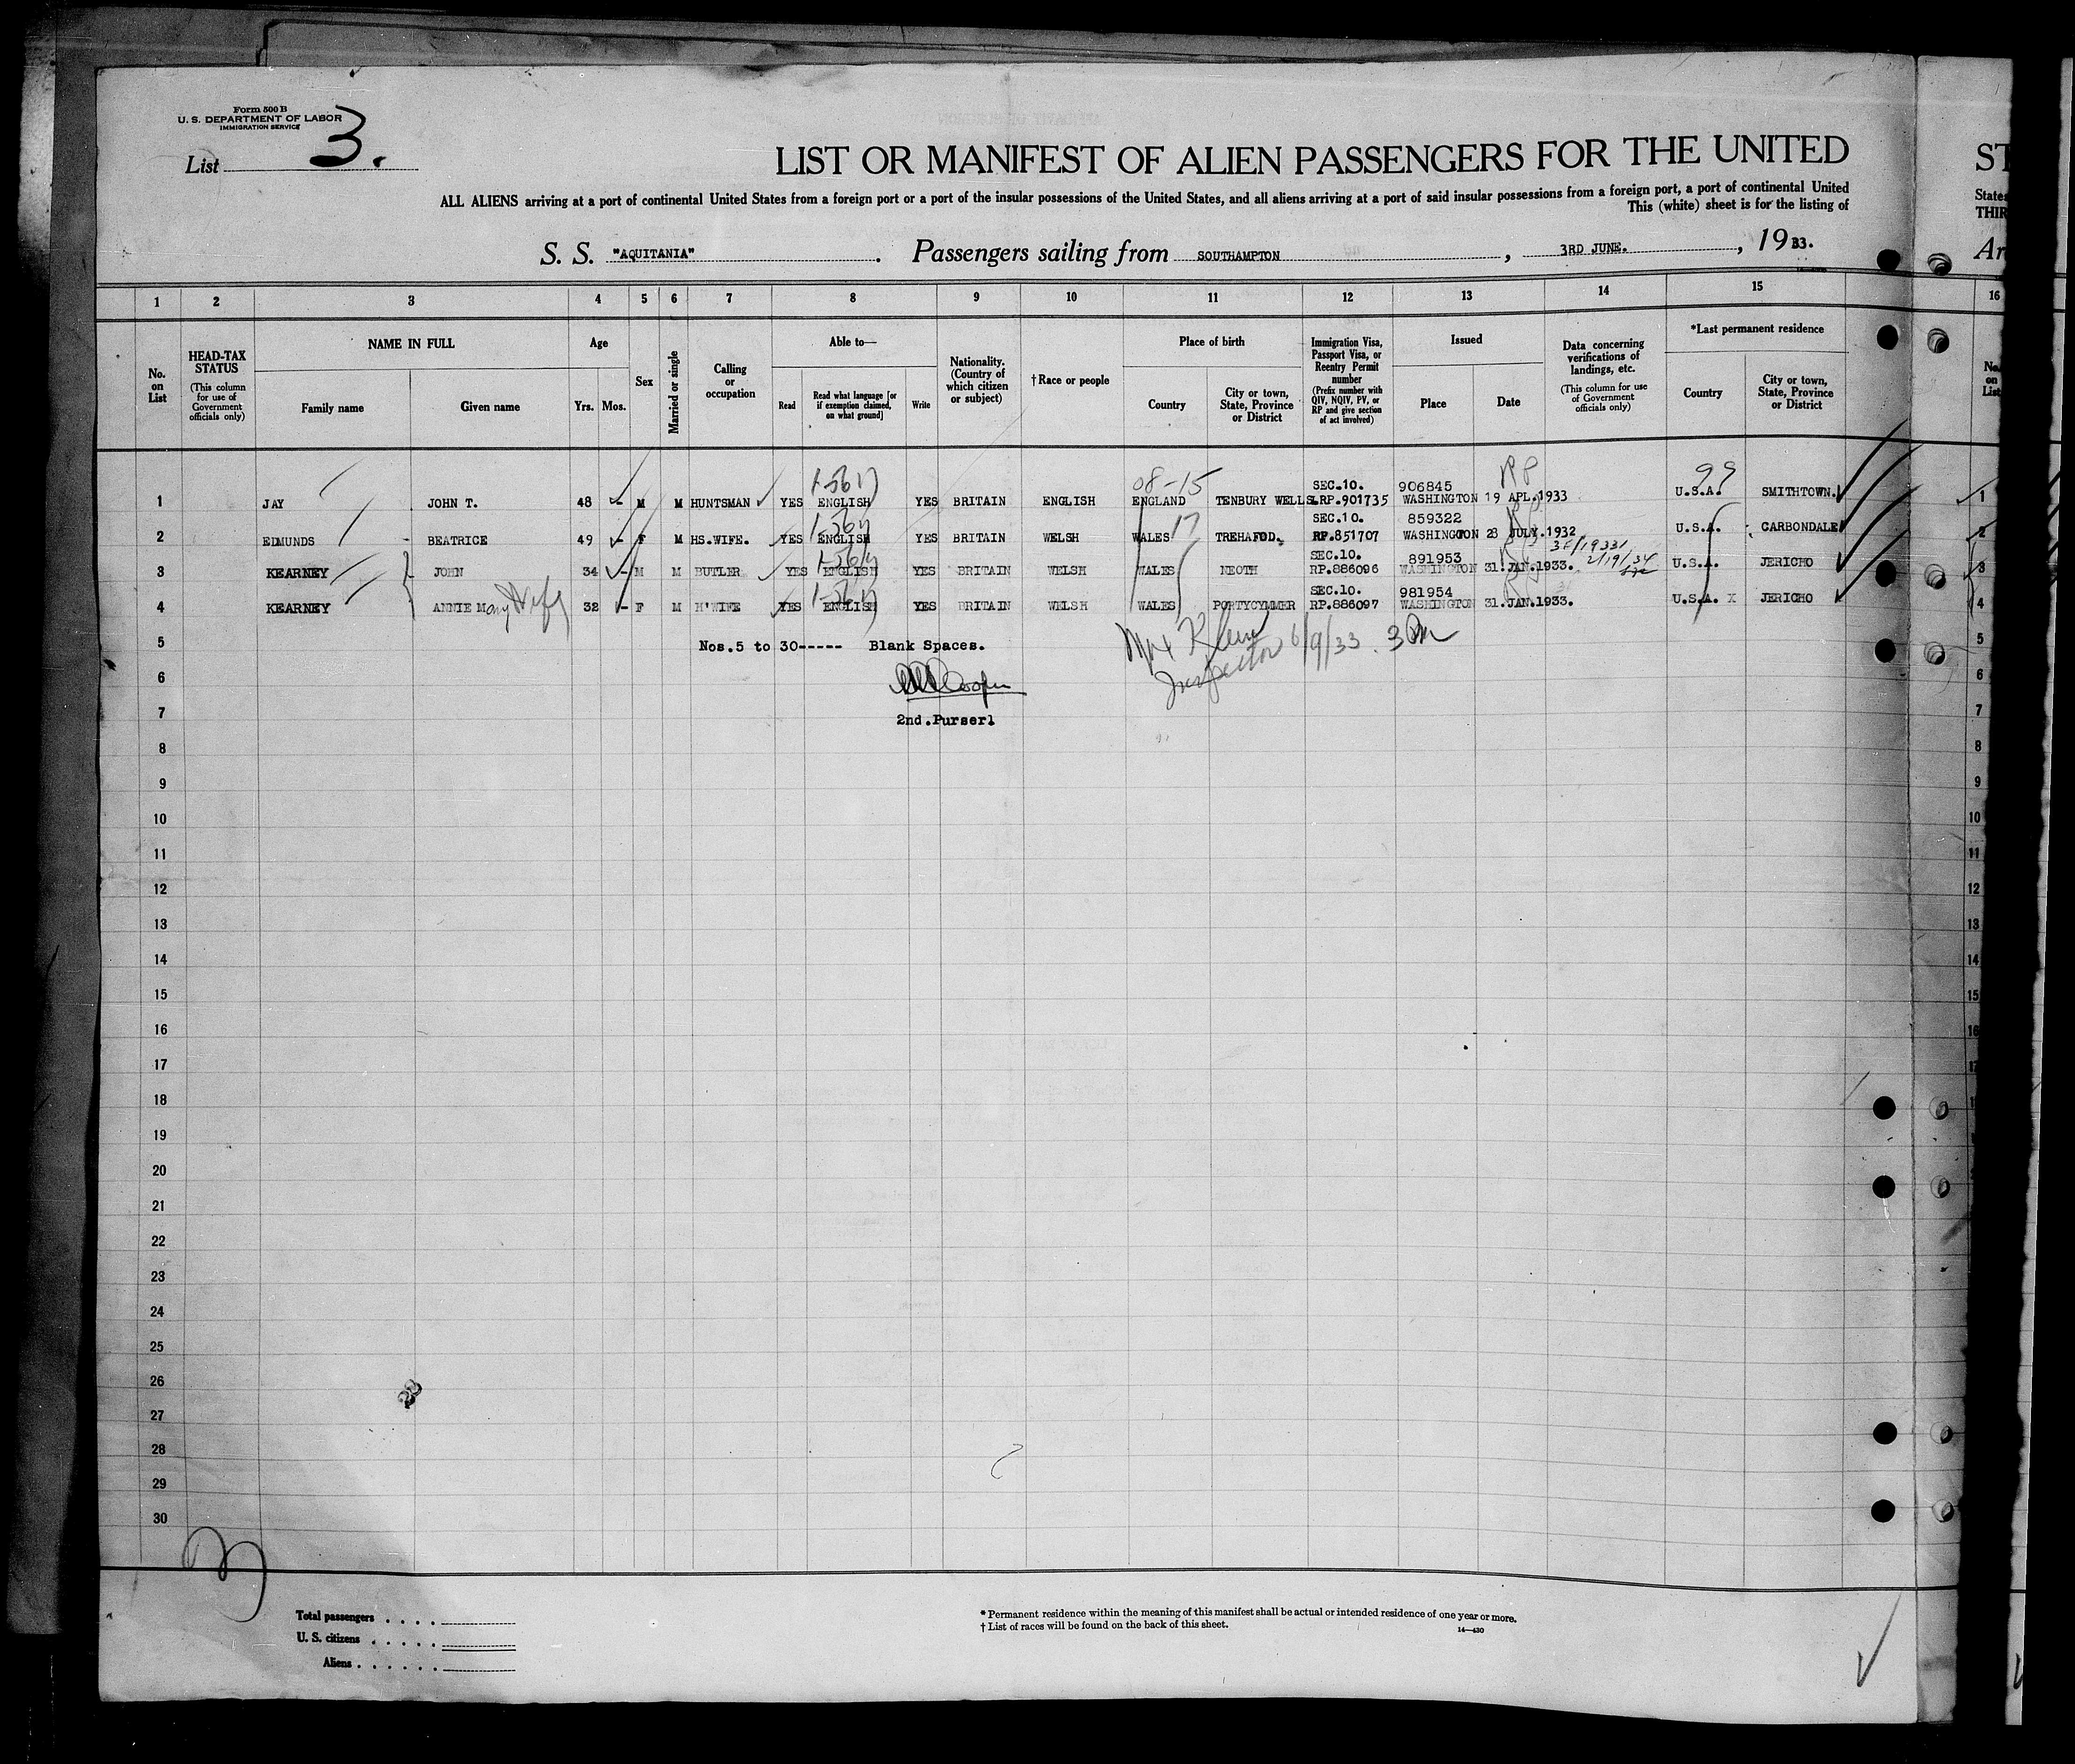 Form 500 B
U. S. DEPARTMENT OF LABOR
IMMIGRATION SERVICE
List 3.
LIST OR MANIFEST OF ALIEN PASSENGERS FOR THE UNITED
ST
ALL ALIENS arriving at a port of continental United States from a foreign port or a port of the insular possessions of the United States, and all aliens arriving at a port of said insular possessions from a foreign port, a port of continental United
States
This (white) sheet is for the listing of
THIR
S. S. "AQUITANIA". Passengers sailing from SOUTHAMPTON, 3RD JUNE., 1933.
Ar
1 2 3 4 5 6 7 8 9 10 11 12 13 14 15 16
No. on List
HEAD-TAX STATUS (This column for use of Government officials only)
NAME IN FULL
Family name Given name
Age
Yrs. Mos.
Sex
Married or single
Calling or occupation
Able to—
Read Read what language [or if exemption claimed, on what ground] Write
Nationality. (Country of which citizen or subject)
† Race or people
Place of birth
Country City or town, State, Province or District
Immigration Visa, Passport Visa, or Reentry Permit number (Prefix number with QIV, NQIV, PV, or RP and give section of act involved)
Issued
Place Date
Data concerning verifications of landings, etc. (This column for use of Government officials only)
*Last permanent residence
Country City or town, State, Province or District
No. on List
08-15 SEC.10. 906845 RP 99
1 JAY JOHN T. 48 - M M HUNTSMAN YES ENGLISH YES BRITAIN ENGLISH ENGLAND TENBURY WELLS. RP.901735 WASHINGTON 19 APL.1933 U.S.A. SMITHTOWN. 1
17 SEC.10. 859322
2 EDMUNDS - BEATRICE 49 - F M HS.WIFE. YES ENGLISH YES BRITAIN WELSH WALES TREHAFOD. RP.851707 WASHINGTON 28 JULY.1932 U.S.A. CARBONDALE 2
SEC.10. 891953 2/19/34
3 KEARNEY JOHN 34 - M M BUTLER YES ENGLISH YES BRITAIN WELSH WALES NEOTH RP.886096 WASHINGTON 31.JAN.1933. U.S.A. JERICHO 3
SEC.10. 981954
4 KEARNEY ANNIE Mary Wife 32 - F M H'WIFE YES ENGLISH YES BRITAIN WELSH WALES PORTYCYMMER RP.886097 WASHINGTON 31.JAN.1933. U.S.A. X JERICHO 4
5 Nos.5 to 30----- Blank Spaces. Klein 6/9/33. 5
6 Cooper Inspector 6
7 2nd.Purser1 7
8 8
9 9
10 10
11 11
12 12
13 13
14 14
15 15
16 16
17
18
19
20
21
22
23
24
25
26
27
28
29
30
Total passengers . . . .
U. S. citizens . . . . .
Aliens . . . . . .
* Permanent residence within the meaning of this manifest shall be actual or intended residence of one year or more.
† List of races will be found on the back of this sheet.
14—430